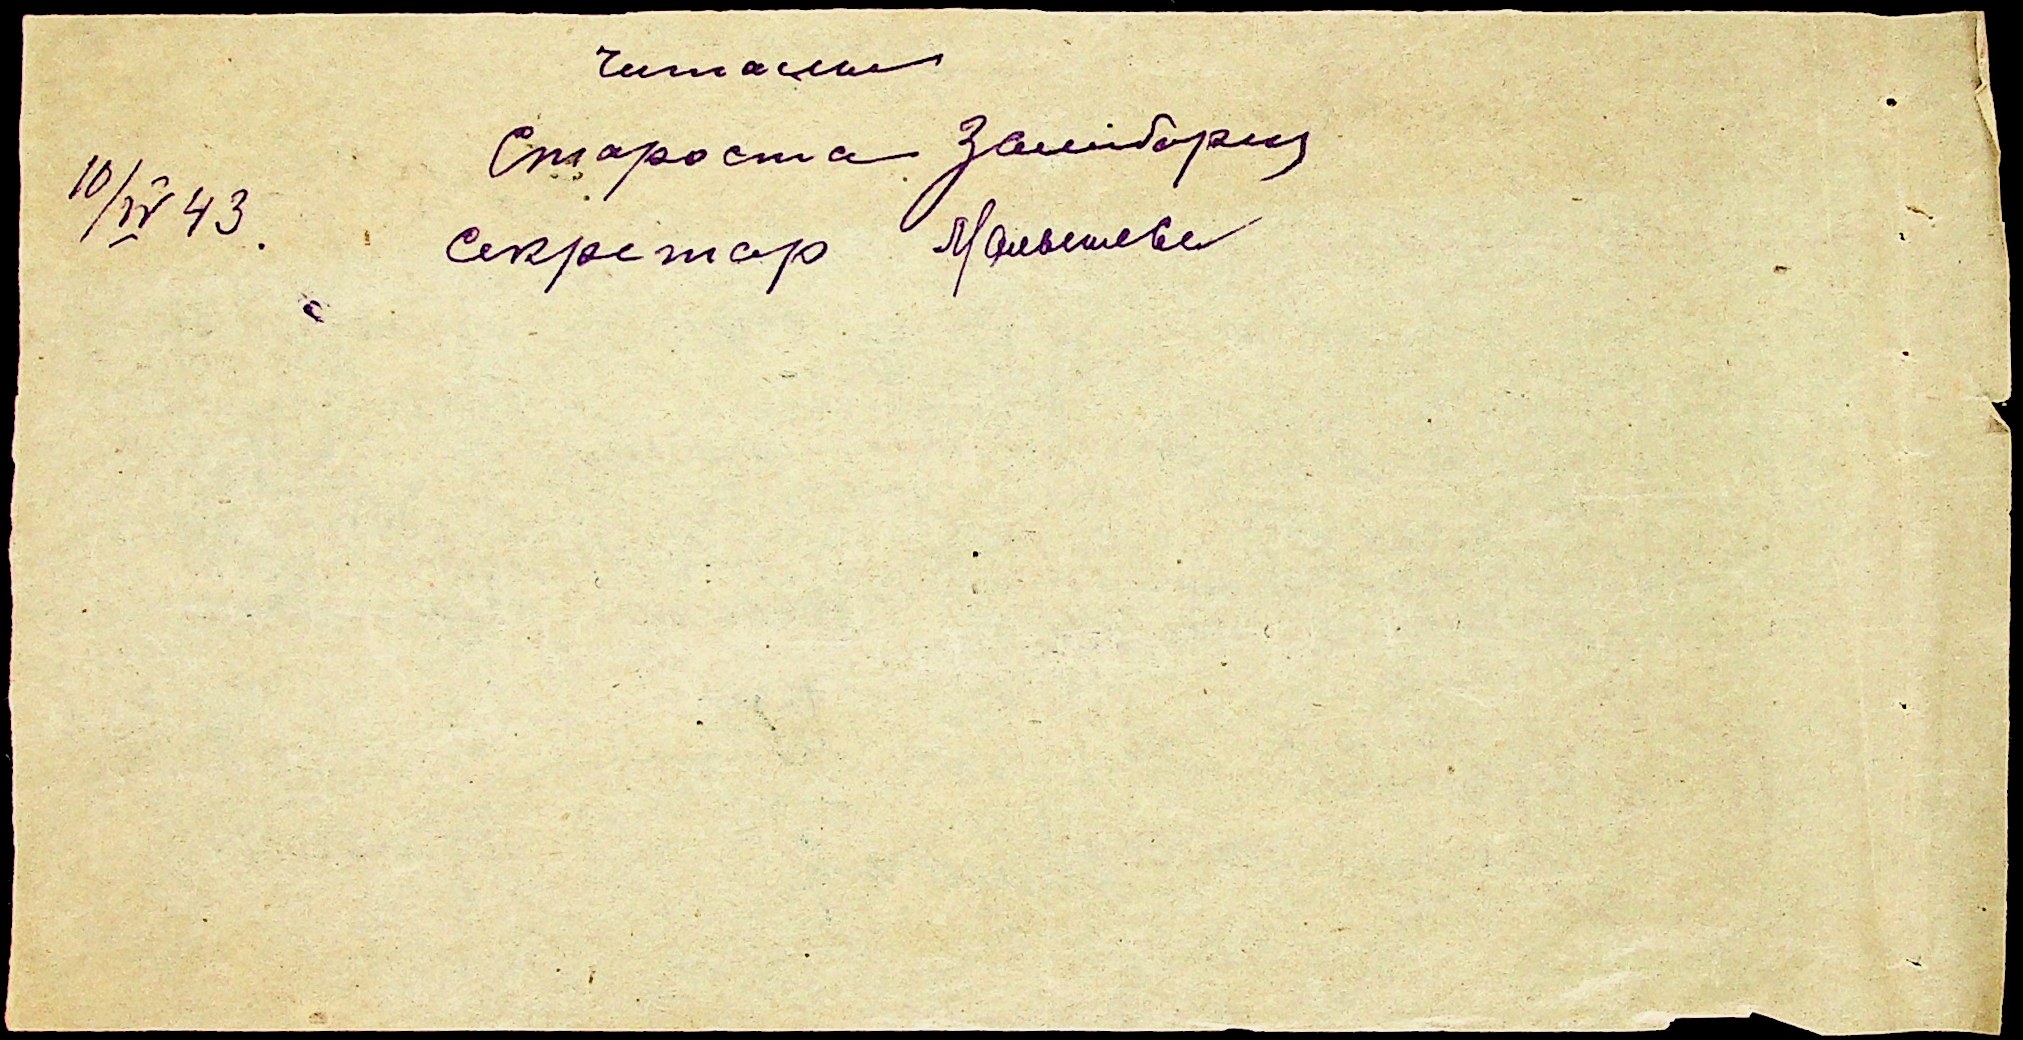 Читали
Староста
10/IV 43.
Секретар Малышева